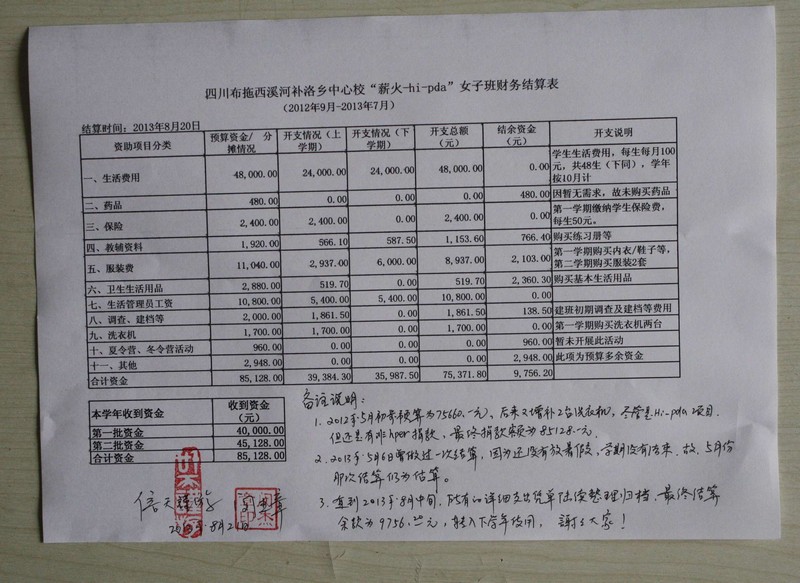 四川布拖西溪河补洛乡中心校“薪火-hi-pda”女子班财务结算表
（2012年9月-2013年7月）
结算时间：2013年8月20日
资助项目分类 预算资金/ 分摊情况 开支情况（上学期） 开支情况（下学期） 开支总额（元） 结余资金（元） 开支说明
一、生活费用 48,000.00 24,000.00 24,000.00 48,000.00 0.00 学生生活费用，每生每月100元，共48生（下同），学年按10月计
二、药品 480.00 0.00 0.00 0.00 480.00 因暂无需求，故未购买药品
三、保险 2,400.00 2,400.00 0.00 2,400.00 0.00 第一学期缴纳学生保险费，每生50元。
四、教辅资料 1,920.00 566.10 587.50 1,153.60 766.40 购买练习册等
五、服装费 11,040.00 2,937.00 6,000.00 8,937.00 2,103.00 第一学期购买内衣/鞋子等，第二学期购买服装2套
六、卫生生活用品 2,880.00 519.70 0.00 519.70 2,360.30 购买基本生活用品
七、生活管理员工资 10,800.00 5,400.00 5,400.00 10,800.00 0.00
八、调查、建档等 2,000.00 1,861.50 0.00 1,861.50 138.50 建班初期调查及建档等费用
九、洗衣机 1,700.00 1,700.00 0.00 1,700.00 0.00 第一学期购买洗衣机两台
十、夏令营、冬令营活动 960.00 0.00 0.00 0.00 960.00 暂未开展此活动
十一、其他 2,948.00 0.00 0.00 0.00 2,948.00 此项为预算多余资金
合计资金 85,128.00 39,384.30 35,987.50 75,371.80 9,756.20
本学年收到资金 收到资金（元）
第一批资金 40,000.00
第二批资金 45,128.00
合计资金 85,128.00
备注说明：
1. 2012年5月初步预算为75660.-元，后来又增补2台洗衣机，尽管是Hi-pda项目，
但还是有非hper捐款，最终捐款额为85128.-元。
2. 2013年5月6日曾做过一次结算，因为还没有放暑假，学期没有结束，故，5月份
那次结算仍为估算。
3. 直到2013年8月中旬，所有的详细支出凭单陆续整理归档，最终结算
余款为9756.20元，转入下学年使用，谢谢大家！
信天
2013年8月21日